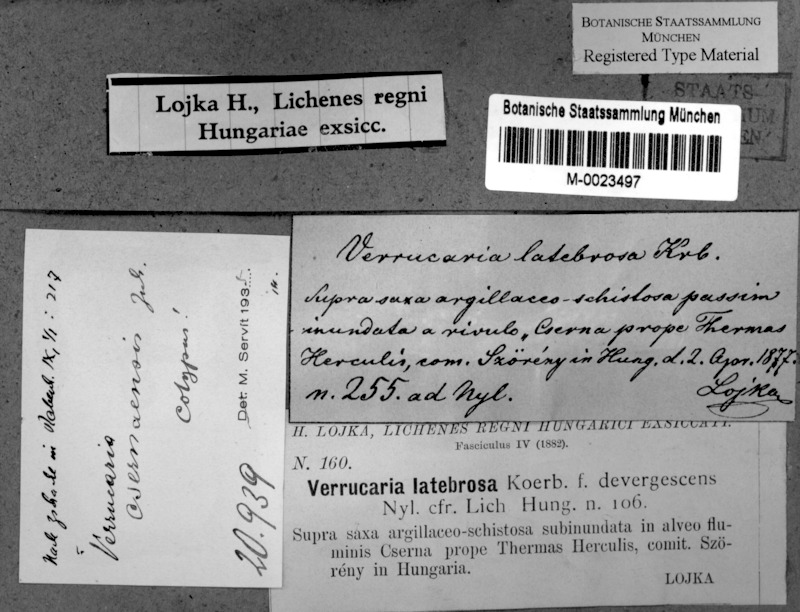 BOTANISCHE STAATSSAMMLUNG
MÜNCHEN
Registered Type Material
STAATS
Lojka H., Lichenes regni
Hungariae exsicc.
Botanische Staatssammlung München
M-0023497
Verrucaria latebrosa Krb.
Supra saxa argillaceo-schistosa passim
inundata a rivulo „Cserna prope Thermas
Herculis, com. Szörény in Hung. d. 2. Apr. 1877.
n. 255. ad Nyl. Lojka
H. LOJKA, LICHENES REGNI HUNGARICI EXSICCATI.
Fasciculus IV (1882).
N. 160.
Verrucaria latebrosa Koerb. f. devergescens
Nyl. cfr. Lich Hung. n. 106.
Supra saxa argillaceo-schistosa subinundata in alveo flu-
minis Cserna prope Thermas Herculis, comit. Szö-
rény in Hungaria.
LOJKA
IX, VI: 217
Verrucaria
csernaensis Zsch.
cotypus!
Det. M. Servít 193
20.939